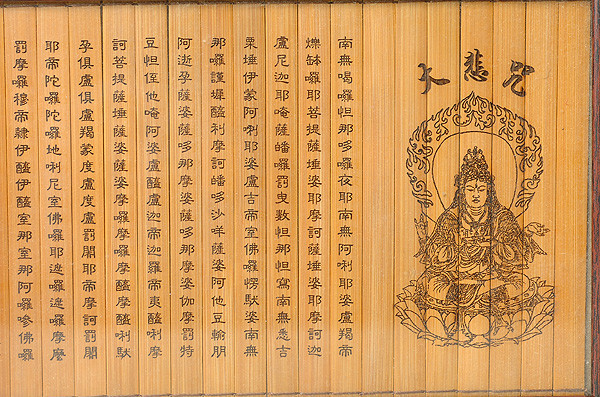 大悲咒
南無喝囉怛那哆囉夜耶南無阿唎耶婆盧羯帝
爍缽囉耶菩提薩埵婆耶摩訶薩埵婆耶摩訶迦
盧尼迦耶唵薩皤囉罰曳數怛那怛寫南無悉吉
栗埵伊蒙阿唎耶婆盧吉帝室佛囉愣馱婆南無
那囉謹墀醯利摩訶皤哆沙咩薩婆阿他豆輸朋
阿逝孕薩婆薩哆那摩婆薩哆那摩婆伽摩罰特
豆怛侄他唵阿婆盧醯盧迦帝迦羅帝夷醯唎摩
訶菩提薩埵薩婆薩婆摩囉摩囉摩醯摩醯唎馱
孕俱盧俱盧羯蒙度盧度盧罰闍耶帝摩訶罰闍
耶帝陀囉陀囉地利尼室佛囉耶遮囉遮囉摩麼
罰摩囉穆帝隸伊醯伊醯室那室那阿囉參佛囉